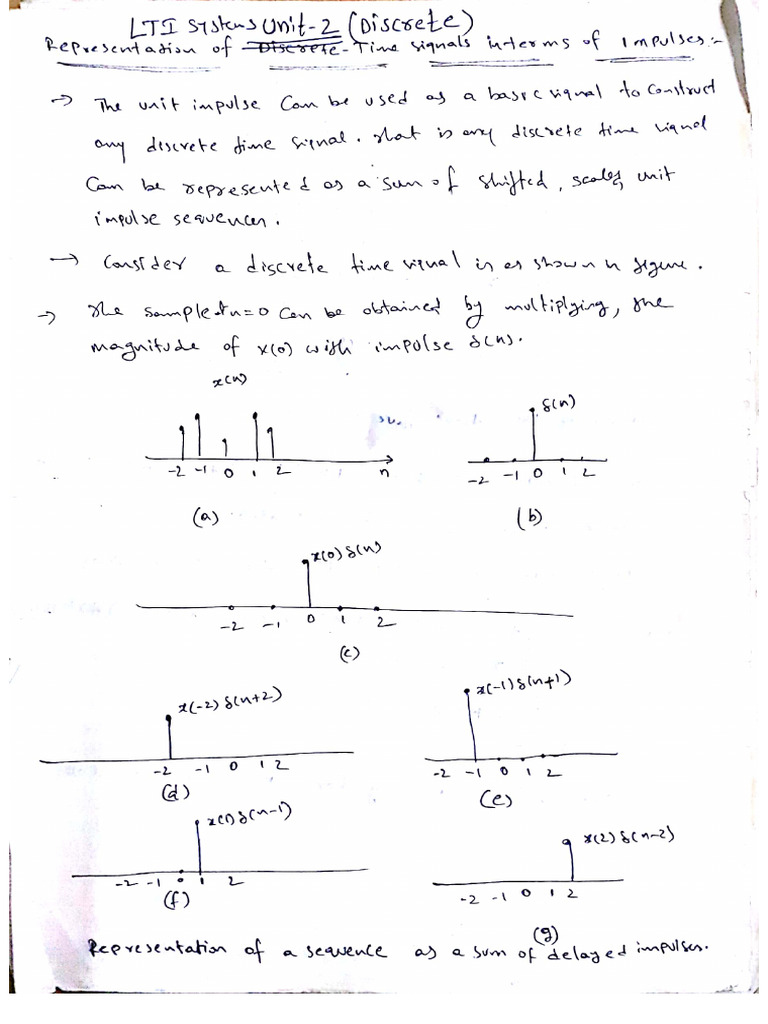 LTI Systems Unit-2 (Discrete)
Representation of Discrete-Time signals interms of Impulses:-
→ The unit impulse Can be used as a basic signal to Construct
any discrete time signal. that is any discrete time signal
Can be represented as a sum of shifted, scaled, unit
impulse sequences.
→ Consider a discrete time signal is as shown in figure.
→ The sample at n=0 Can be obtained by multiplying, the
magnitude of x(0) with impulse δ(n).
x(n)
-2 -1 0 1 2 n
(a)
δ(n)
-2 -1 0 1 2
(b)
x(0) δ(n)
-2 -1 0 1 2
(c)
x(-2) δ(n+2)
-2 -1 0 1 2
(d)
x(-1) δ(n+1)
-2 -1 0 1 2
(e)
x(1) δ(n-1)
-2 -1 1 2
(f)
x(2) δ(n-2)
-2 -1 0 1 2
(g)
Representation of a sequence as a sum of delayed impulses.